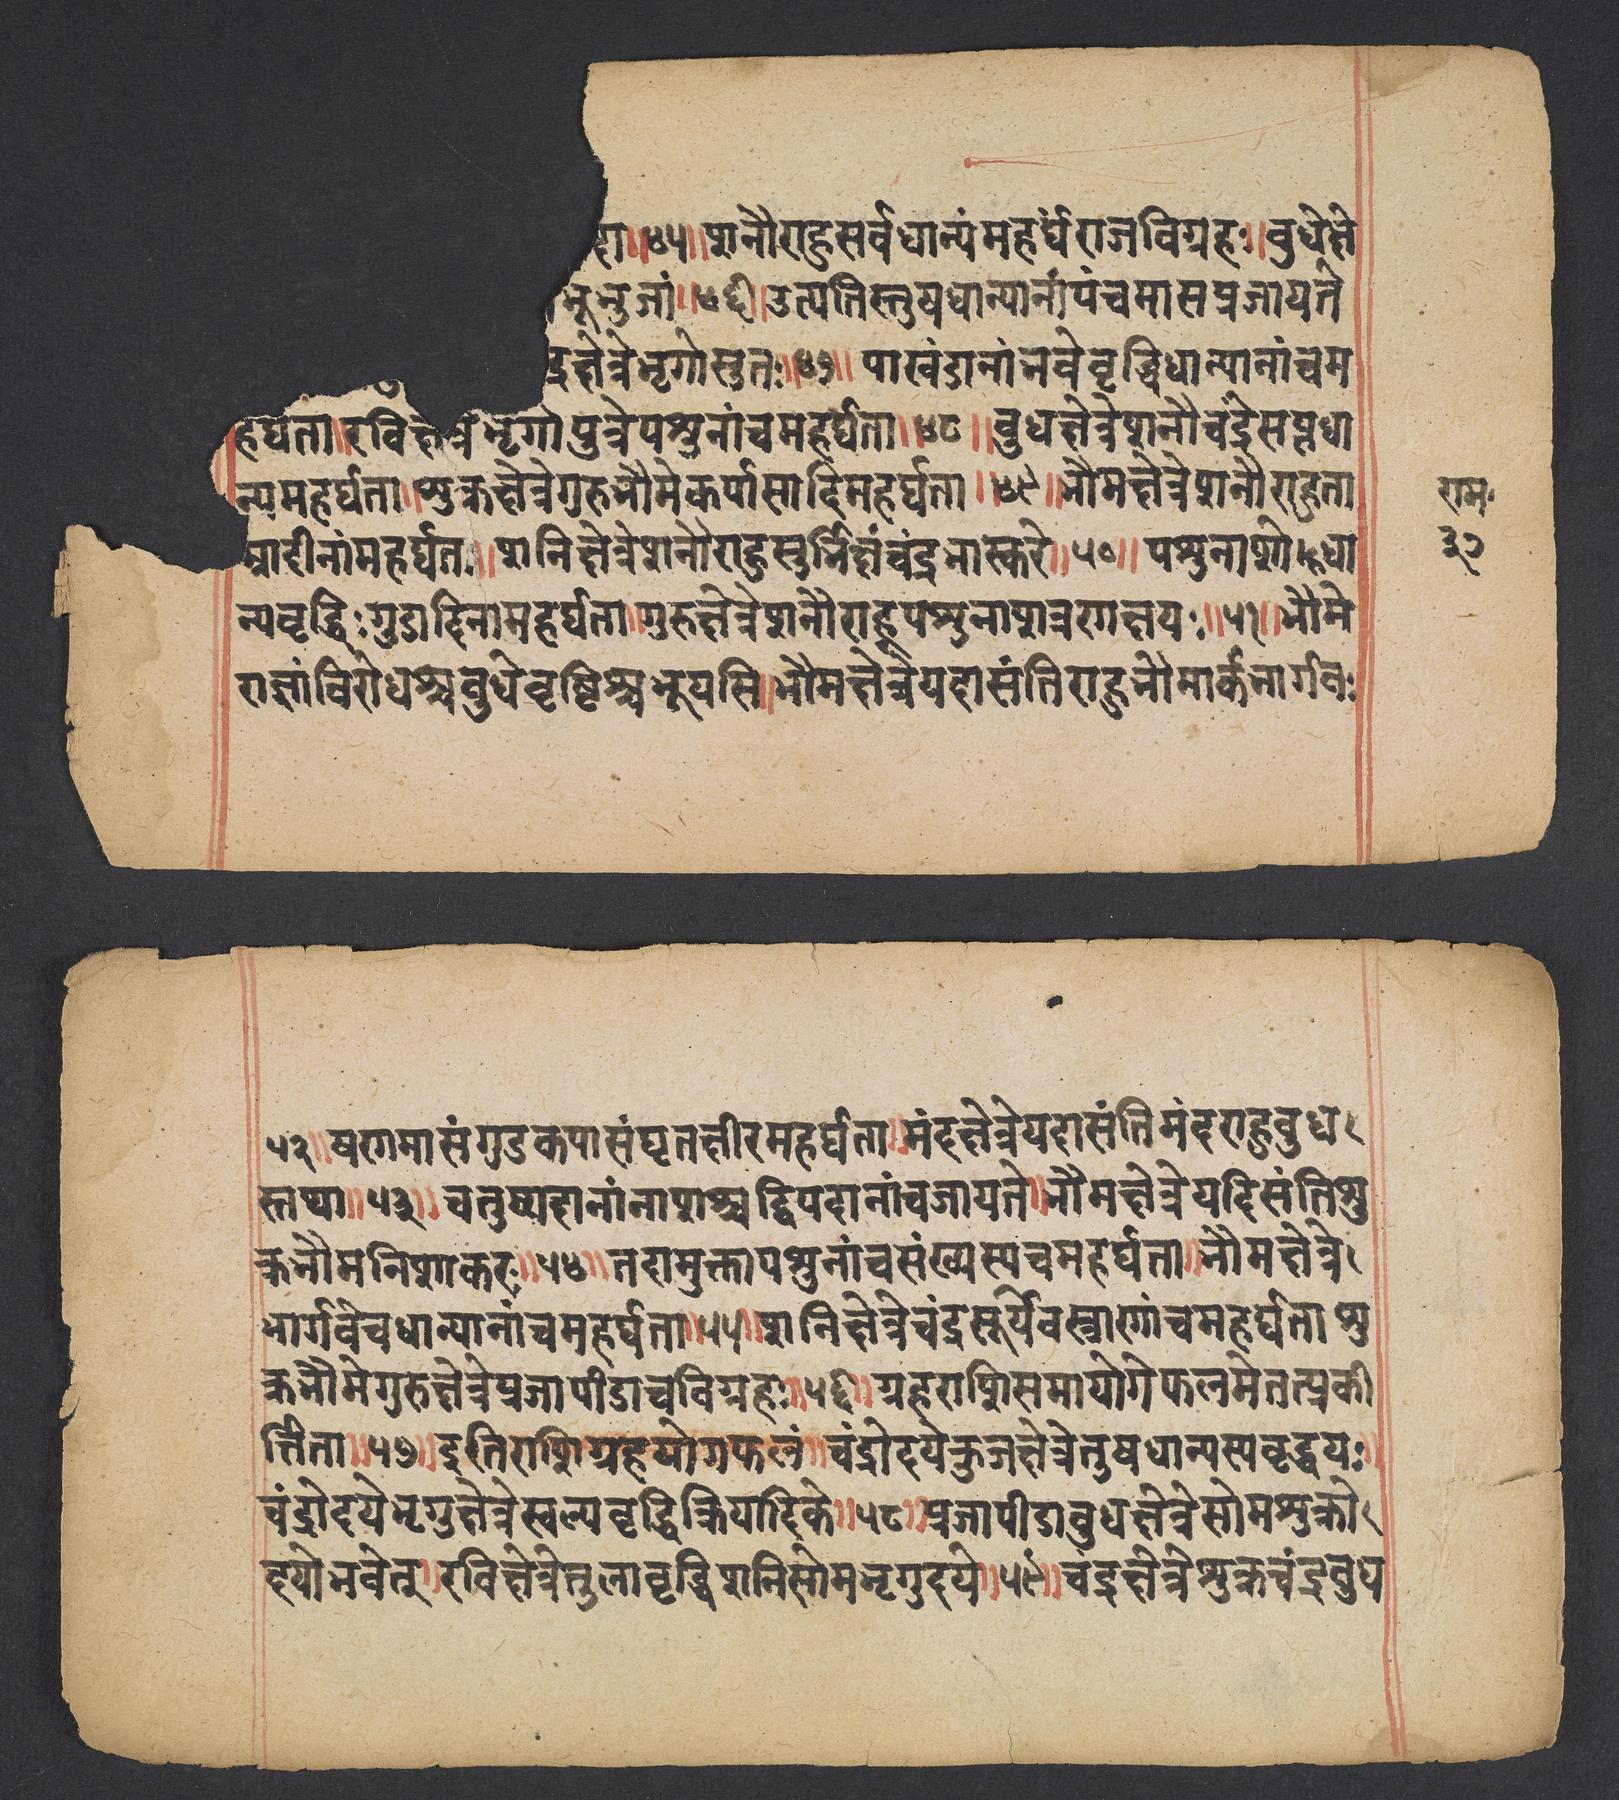 हा॥४५॥शनौराहुसर्वधान्यंमहर्घंराजविग्रहः॥बुधेक्षे
भूभुजां॥४६॥उत्पतिस्तुषधान्यानांपंचमासप्रजायते
द्रक्षेत्रेभृगोसुतः॥४७॥पाखंडानांभवेवृद्धिधान्यानांचम
हर्घता॥रविक्षेत्रेभृगोपुत्रेपशुनांचमहर्घता॥४८॥बुधक्षेत्रेशनौचंद्रेसप्तधा
न्यमहर्घता॥शुक्रक्षेत्रेगुरुभौमेकर्पासादिमहर्घता॥४९॥भौमक्षेत्रेशनौराहुता
म्रादीनांमहर्घत॥शनिक्षेत्रेशनौराहुसुर्भिक्षंचंद्रभास्करे॥५०॥पशुनाशो
न्यवृद्धिःगुडादिनामहर्घता॥गुरुक्षेत्रेशनौराहूपशुनाशन्नरगक्षयः॥५१॥भौमे
राज्ञांविरोधश्चबुधेवृष्टिश्चभूयसि॥भौमक्षेत्रेयदासंतिराहुभौमार्कभार्गवः
राम
३१
५२॥षण्मासंगुडकपासंघृतक्षीरमहर्घता॥मंदक्षेत्रेयदासंतिमंदराहुबुध
स्तथा॥५३॥चतुष्पदानांनाशश्चद्विपदानांचजायते॥भौमक्षेत्रेयदिसंतिशु
क्रभौमनिशाकरः॥५४॥तदामुक्तापशुनांचसंख्यस्यचमहर्घता॥भौमक्षेत्रे
भार्गवेचधान्यानांचमहर्घता॥५५॥शनिक्षेत्रेचंद्रसूर्येवस्त्राणांचमहर्घताशु
क्रभौमेगुरुक्षेत्रेप्रजापीडाचविग्रहः॥५६॥ग्रहराशिसमायोगेफलमेतत्प्रकी
र्त्तिता॥५७॥इतिराशिग्रहयोगफलं॥चंद्रोदयेकुजक्षेत्रेतुषधान्यस्यवृद्धयः॥
चंद्रोदयेभृगुक्षेत्रेस्वल्पवृद्धिक्रियादिके॥५८॥प्रजापीडाबुधक्षेत्रेसोमशुक्रो
दयोभवेत्॥रविक्षेत्रेतुलावृद्धिशनिसोमभृगुदये॥५९॥चंद्रक्षेत्रेशुक्रचंद्रबुध